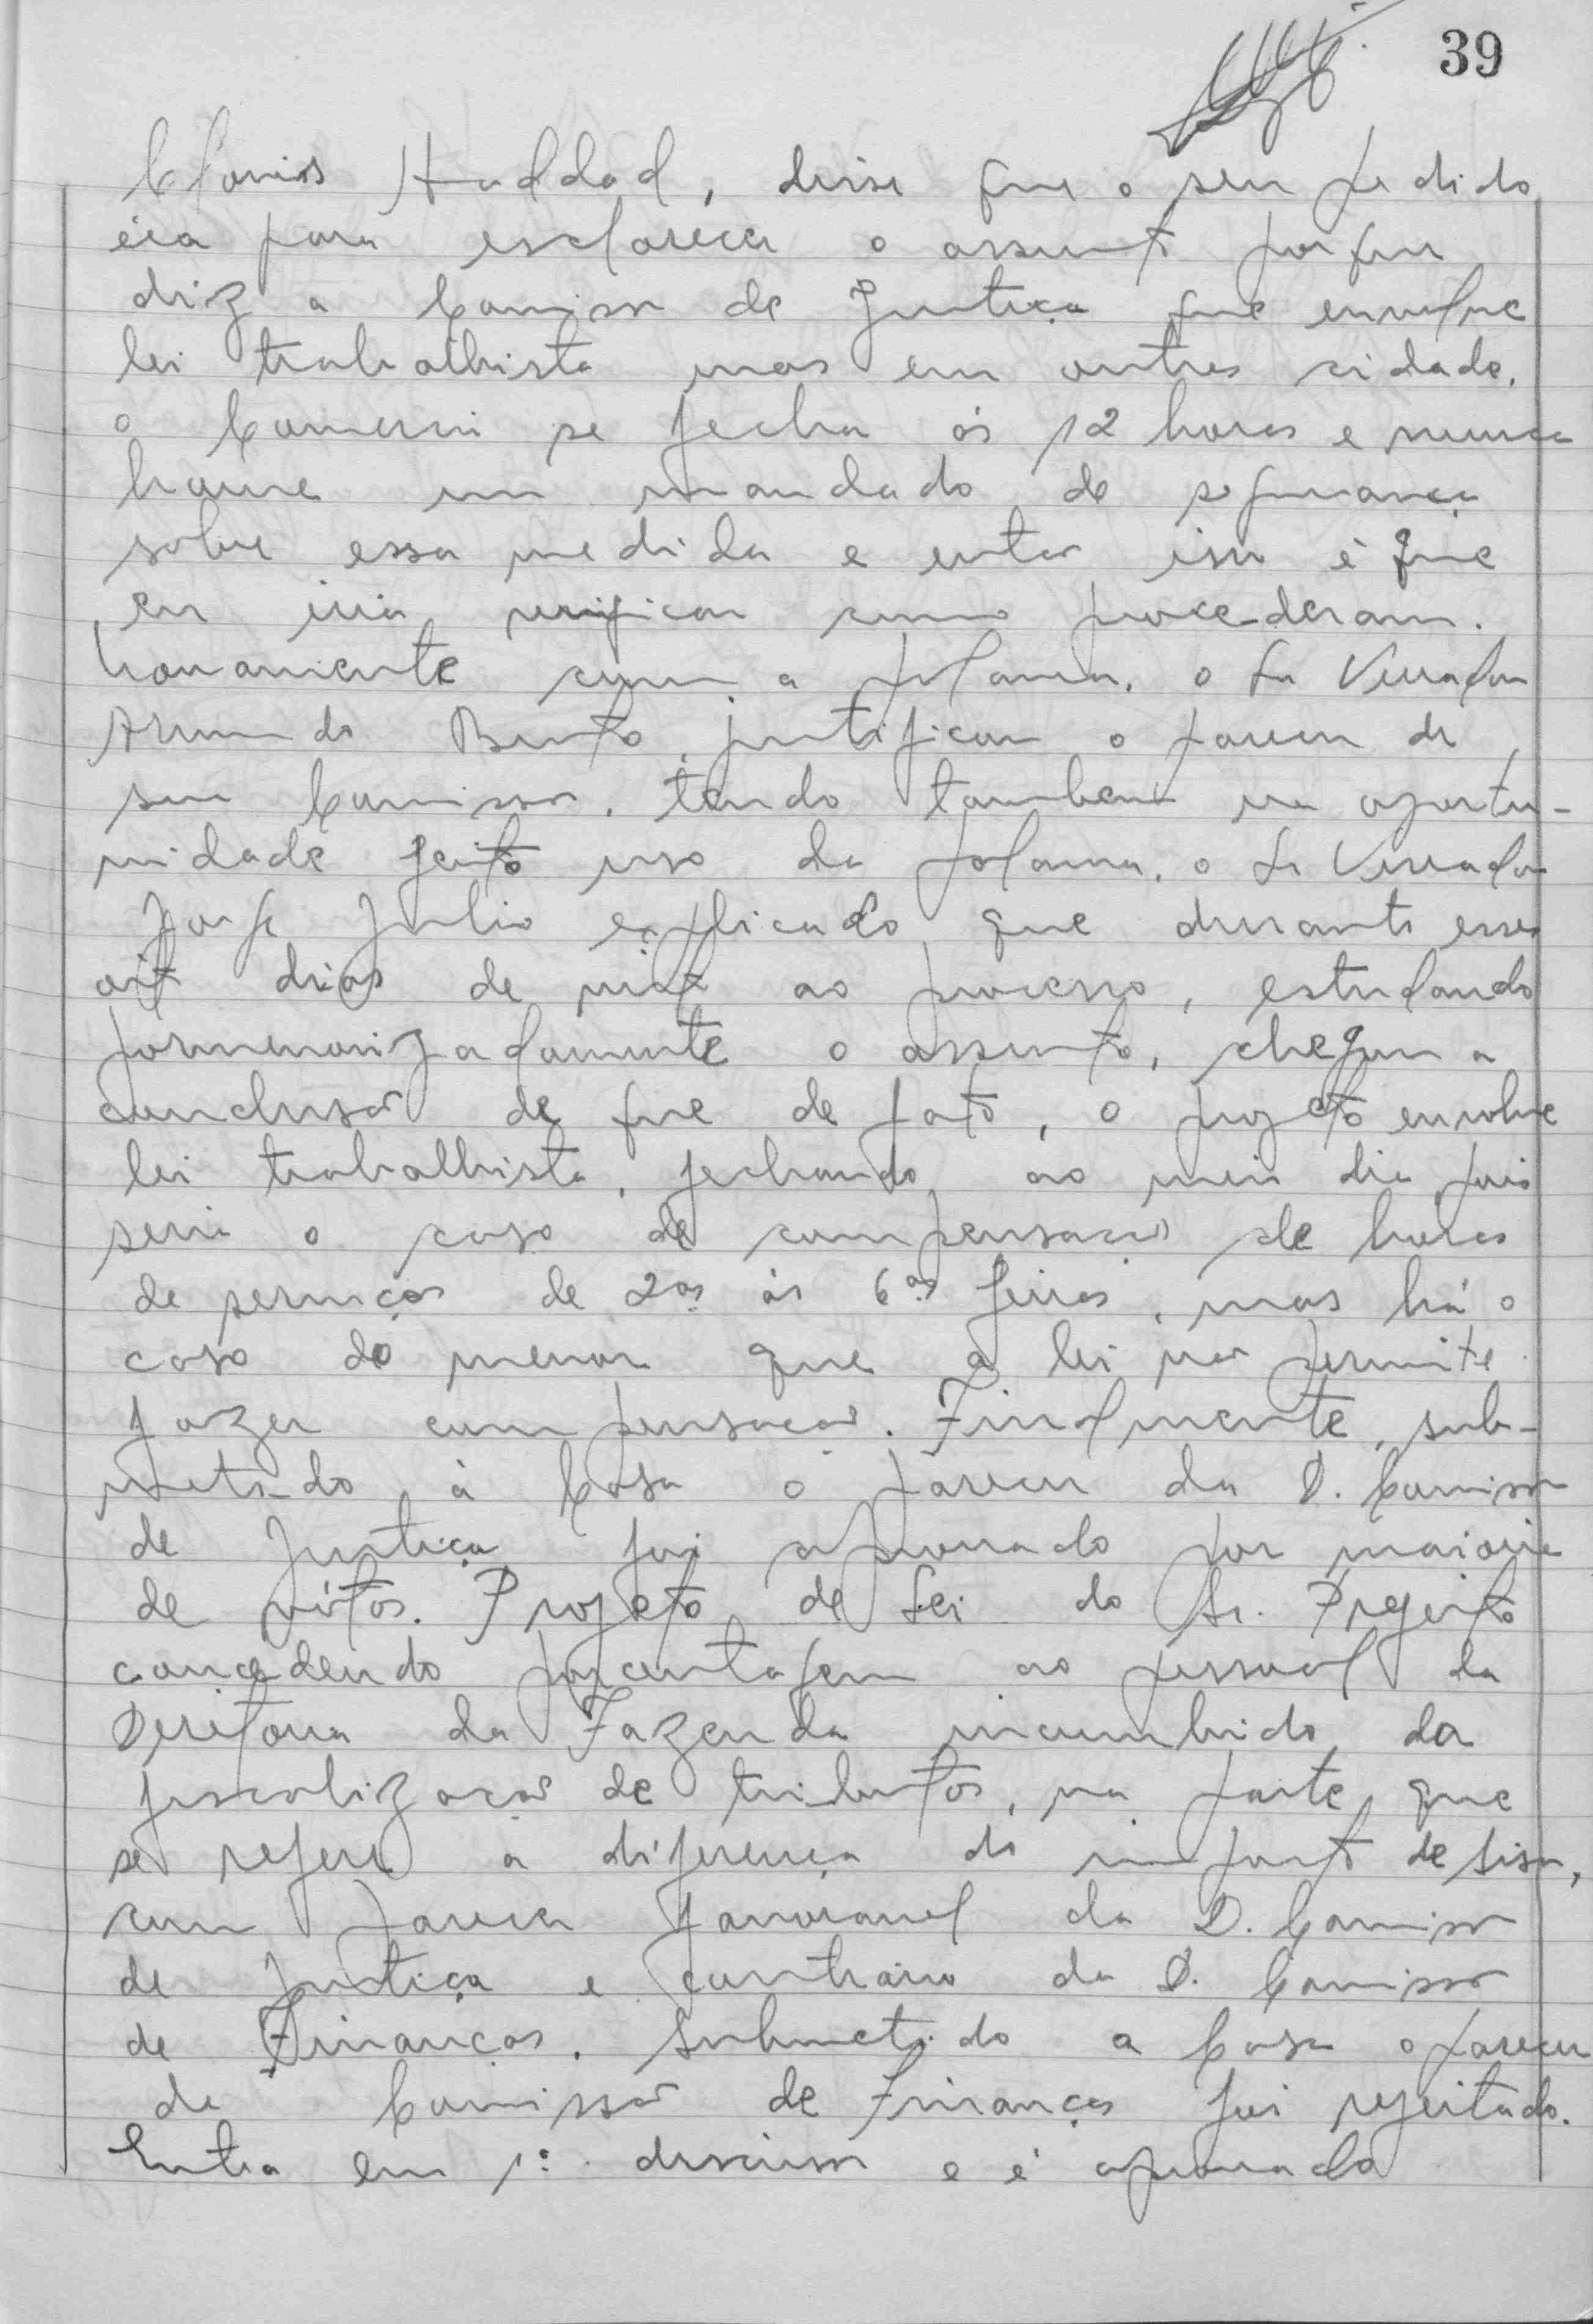 39
Clovis Haddad, disse que o seu pedido
éra para esclarecer o assunto porque
diz a Comissão de Justiça que envolve
lei trabalhista mas em outras cidade.
o Comercio se fecha ás 12 horas e nunca
houve um mandado de segurança
sobre essa medida e então isso é que
eu iria verificar como procederam.
Novamente com a palavra, o Sr Vereador
Armando Bento, justificou o parecer de
sua Comissão, tendo tambem na oportu-
nidade feito uso da palavra, o Sr Vereador
Jorge Julio explicado que durante esses
oito dias de vista ao processo, estudando
pormenorizadamente o assunto, chegou a
conclusão de que de fato, o projeto envolve
lei trabalhista, fechando ao meio dia pois
seria o caso de compensação de horas
de serviços de 2as ás 6as feiras, mas há o
caso do menor que a lei não permite
fazer compensação. Finalmente, sub-
metido á Casa o parecer da D. Comissão
de Justiça foi aprovado por maioria
de vótos. Projeto de Lei do Sr. Prefeito
concedendo porcentagem ao pessoal da
Diretoria da Fazenda incumbido da
fiscalização de tributos, na parte que
se refere a diferença do imposto de sisa,
com parecer favoravel da D. Comissão
de Justiça e contrário da D. Comissão
de Finanças. Submetido a Casa o parecer
da Comissão de Finanças foi rejeitado.
Entra em 1ª discussão e é aprovado